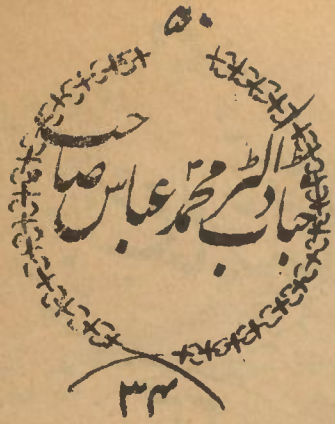 ۵۰
جناب ڈاکٹر محمد عباس صاحب
۳۴